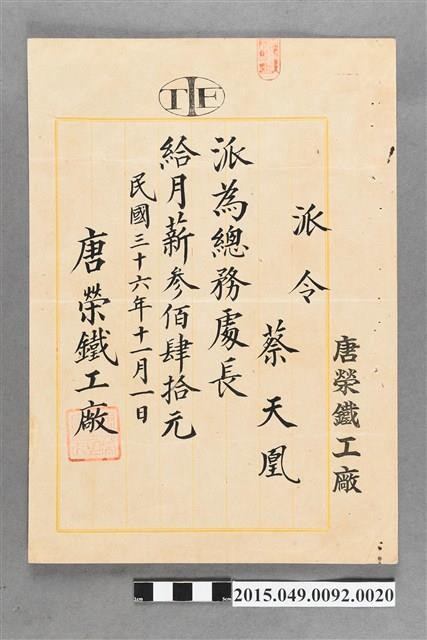 TIF
唐榮鐵工廠
派令
蔡天凰
派為總務處長
給月薪參佰肆拾元
民國三十六年十一月一日
唐榮鐵工廠
1cm
5cm
2015.049.0092.0020